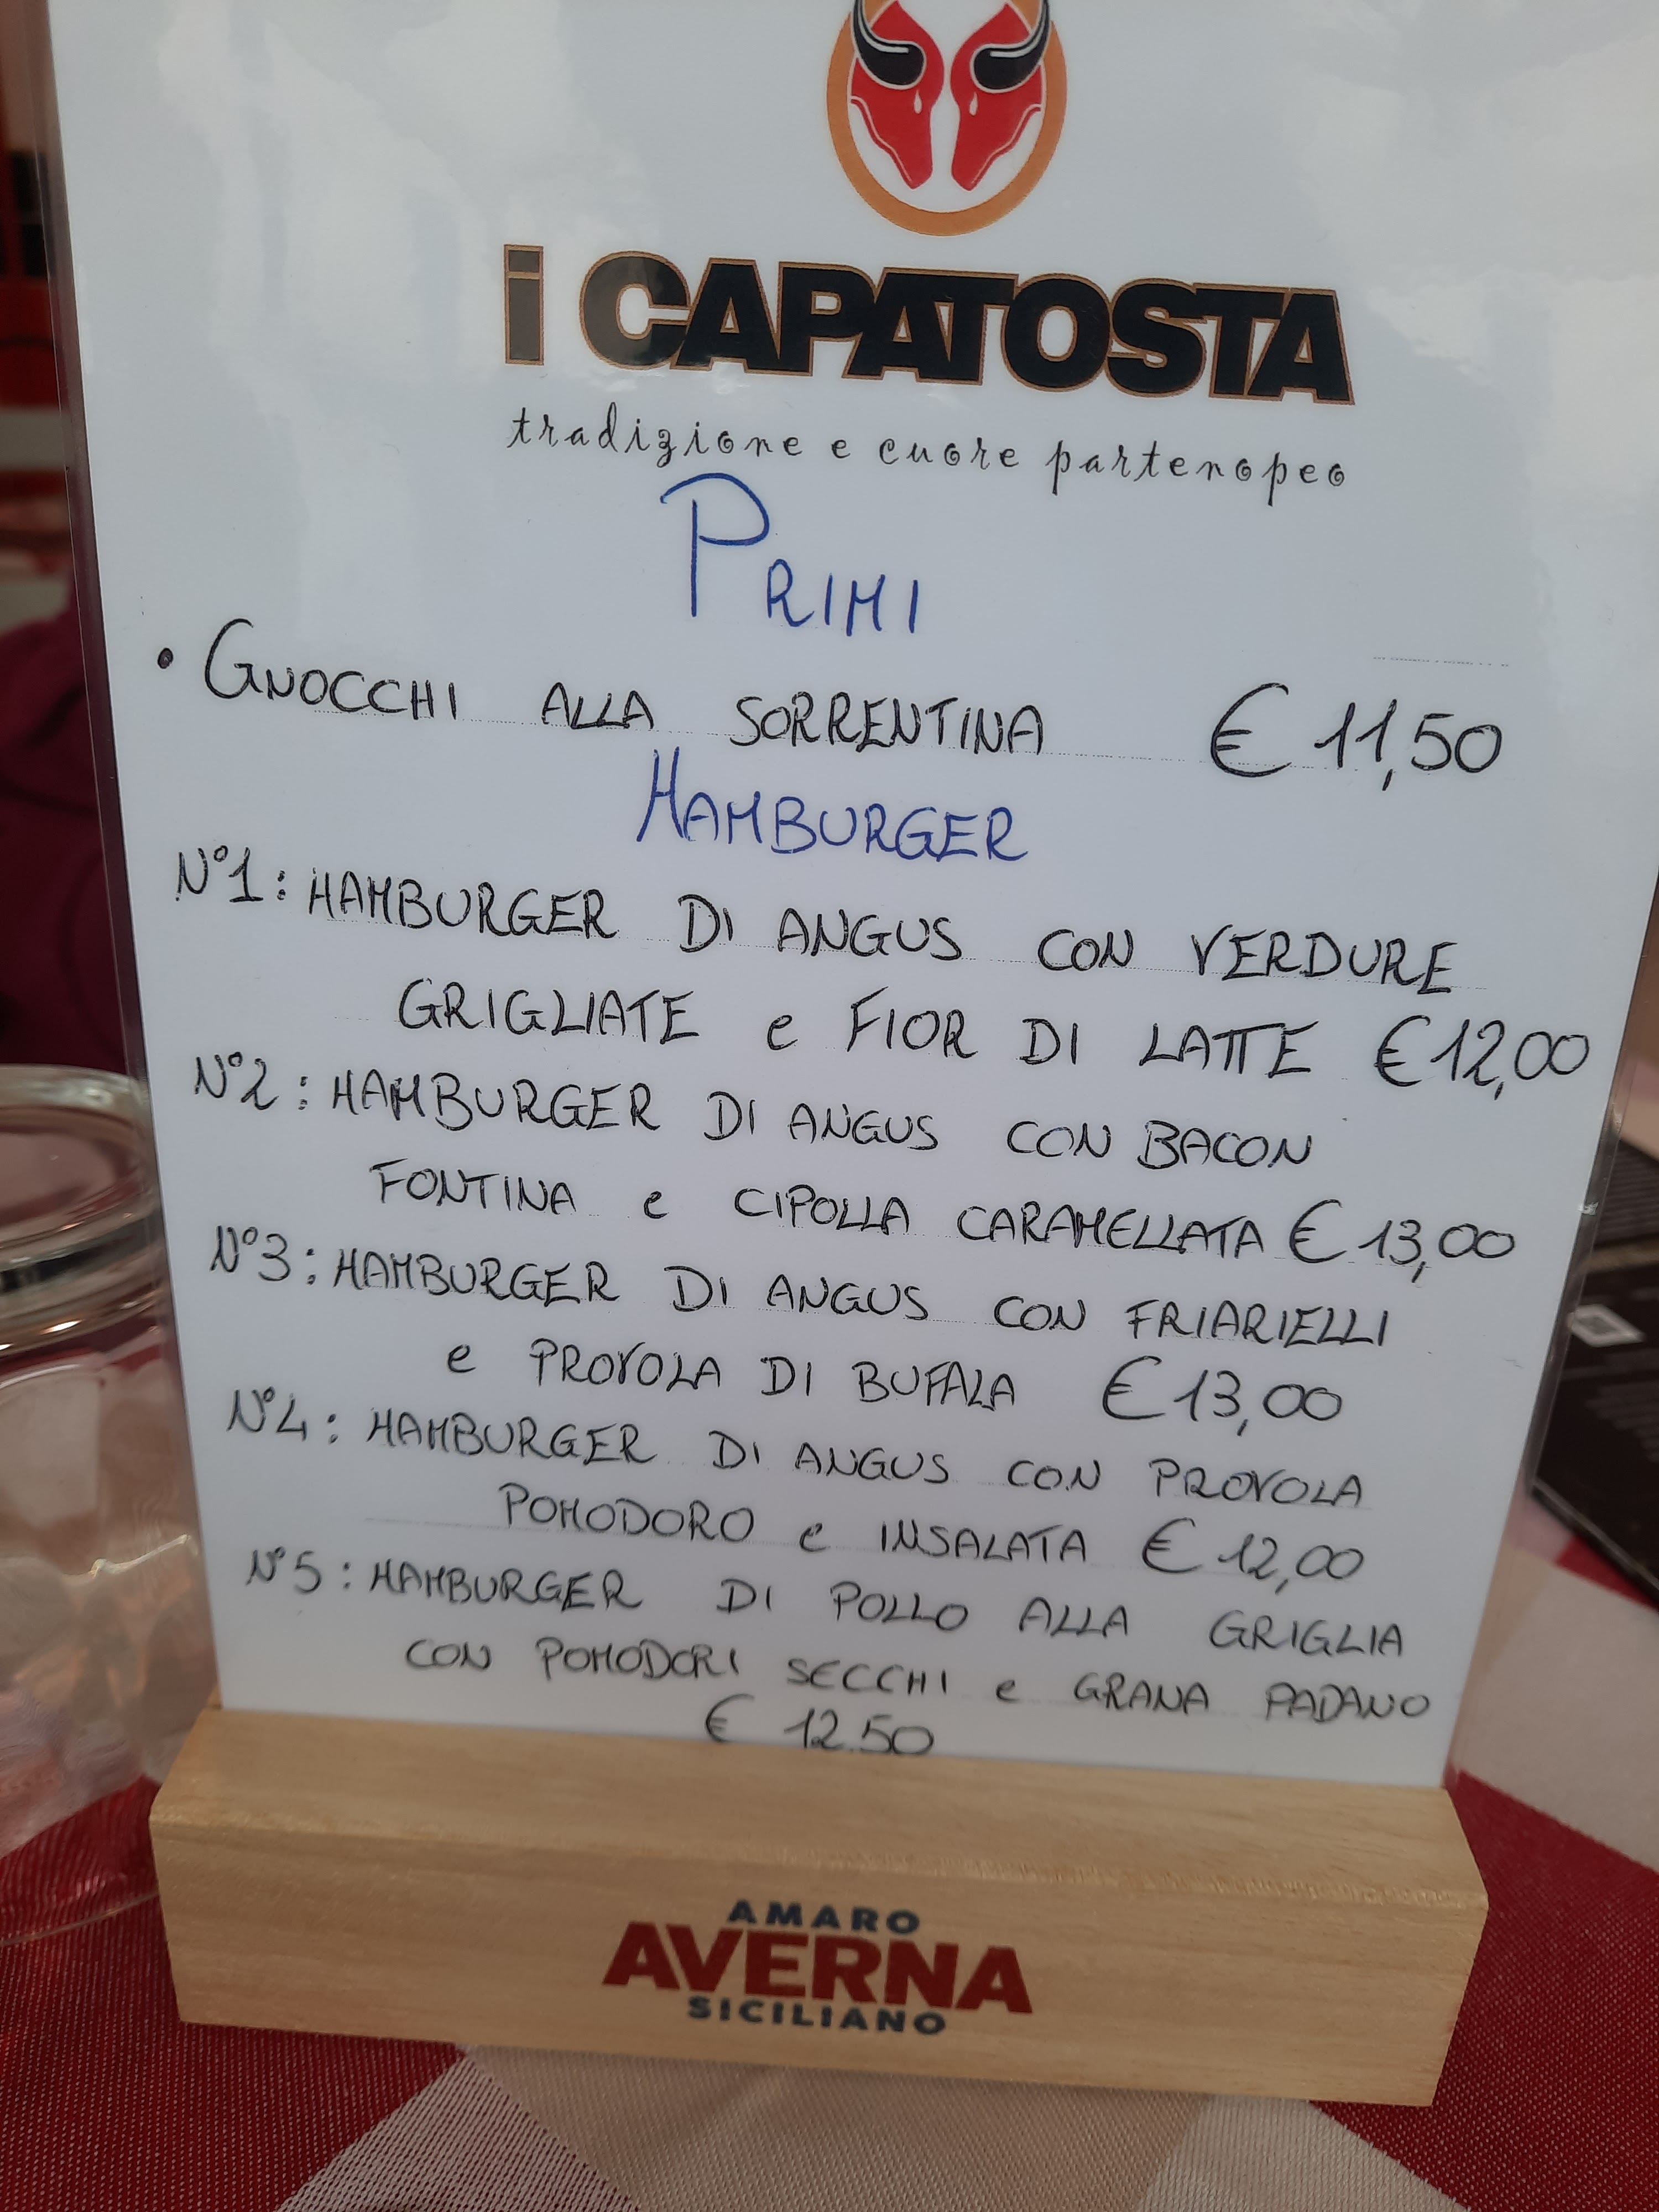 i CAPATOSTA
tradizione e cuore partenopeo
PRIMI
• GNOCCHI ALLA SORRENTINA € 11,50
HAMBURGER
N°1: HAMBURGER DI ANGUS CON VERDURE
GRIGLIATE e FIOR DI LATTE € 12,00
N°2: HAMBURGER DI ANGUS CON BACON
FONTINA e CIPOLLA CARAMELLATA € 13,00
N°3: HAMBURGER DI ANGUS CON FRIARIELLI
e PROVOLA DI BUFALA € 13,00
N°4: HAMBURGER DI ANGUS CON PROVOLA
POMODORO e INSALATA € 12,00
N°5: HAMBURGER DI POLLO ALLA GRIGLIA
CON POMODORI SECCHI e GRANA PADANO
€ 12.50
AMARO
AVERNA
SICILIANO